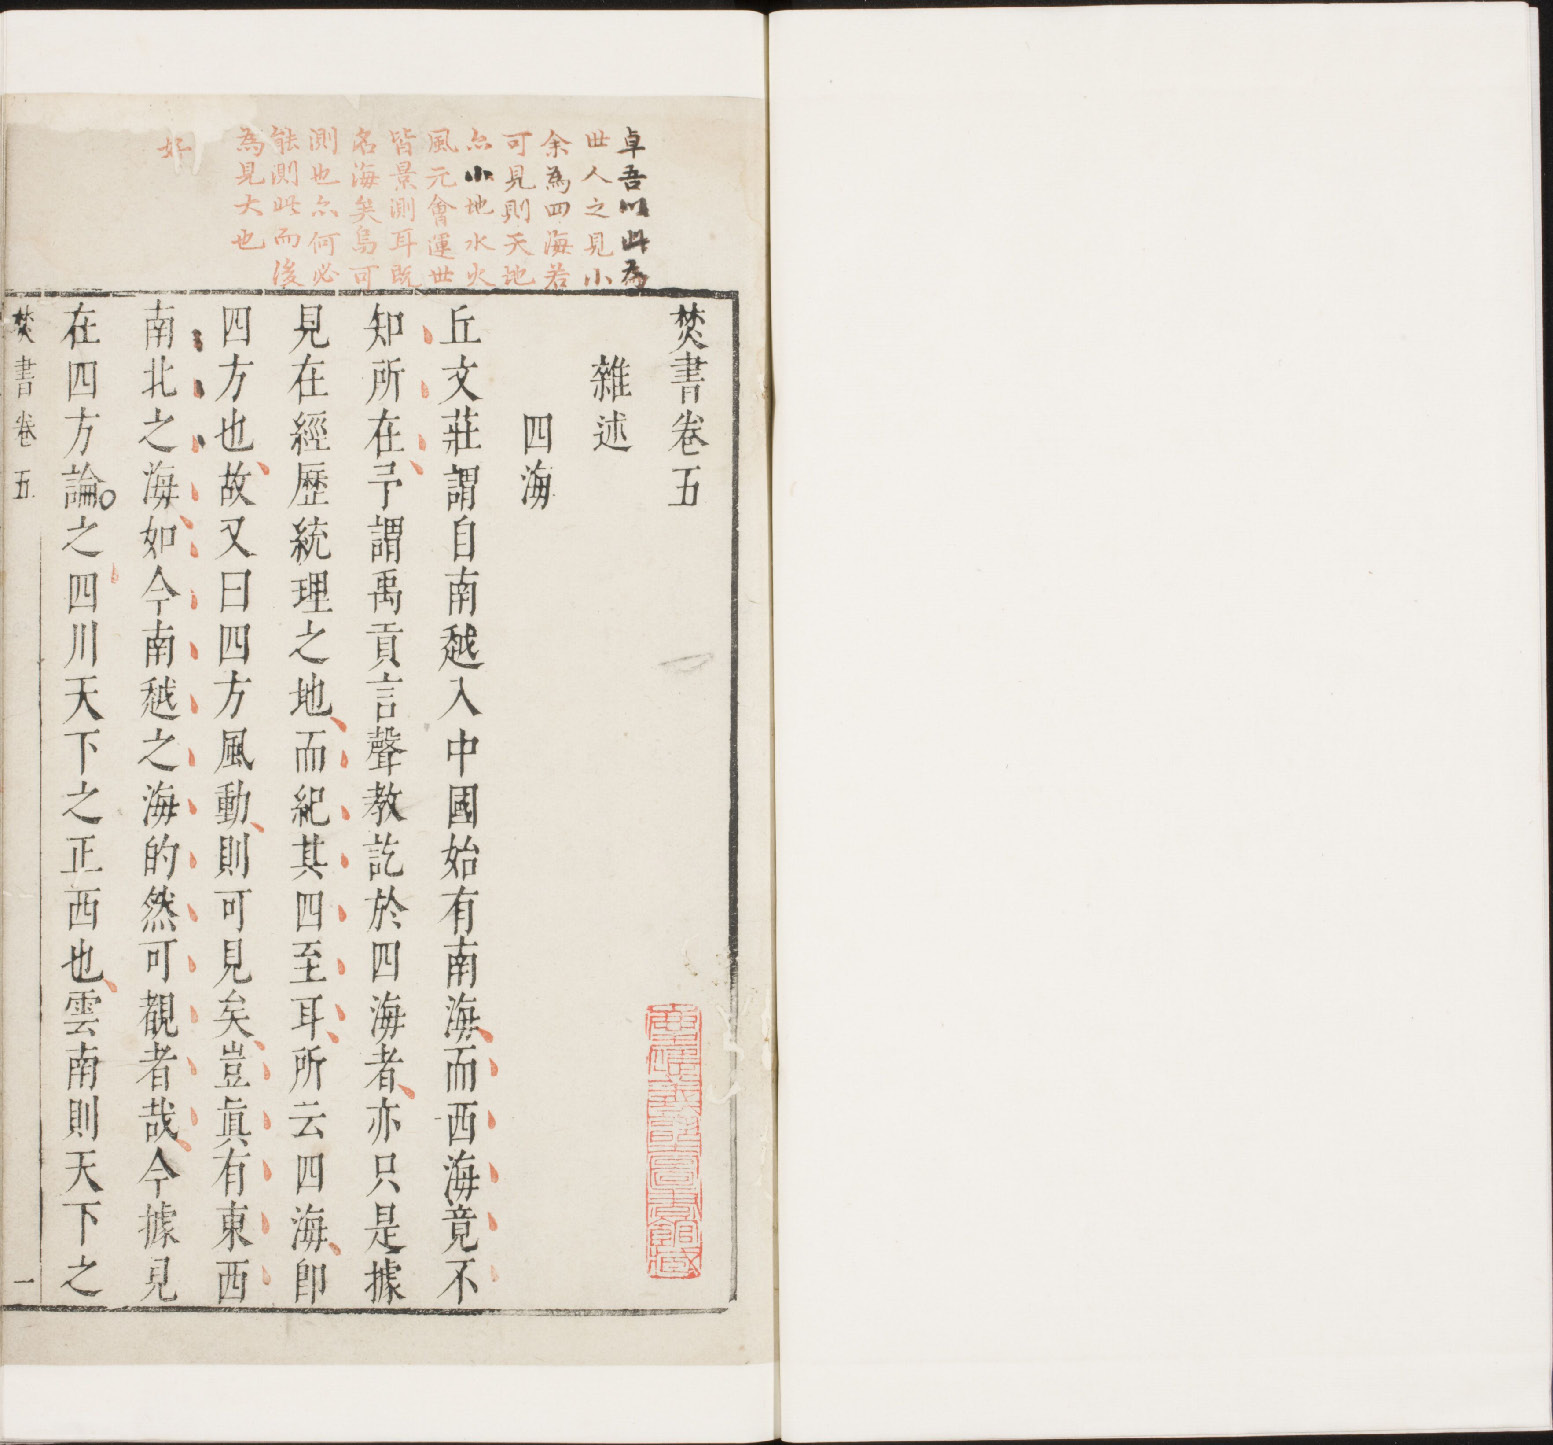 卓吾以此為
世人之見小
余為四海若
可見則天地
亦小地水火
風元會運世
皆景測耳既
名海矣烏可
測也亦何必
能測此而後
為見大也
好
焚書卷五
雜述
四海
丘文莊謂自南越入中國始有南海而西海竟不
知所在予謂禹貢言聲教訖於四海者亦只是據
見在經歷統理之地而紀其四至耳所云四海卽
四方也故又曰四方風動則可見矣豈真有東西
南北之海如今南越之海的然可觀者哉今據見
在四方論之四川天下之正西也雲南則天下之
焚書卷五
一